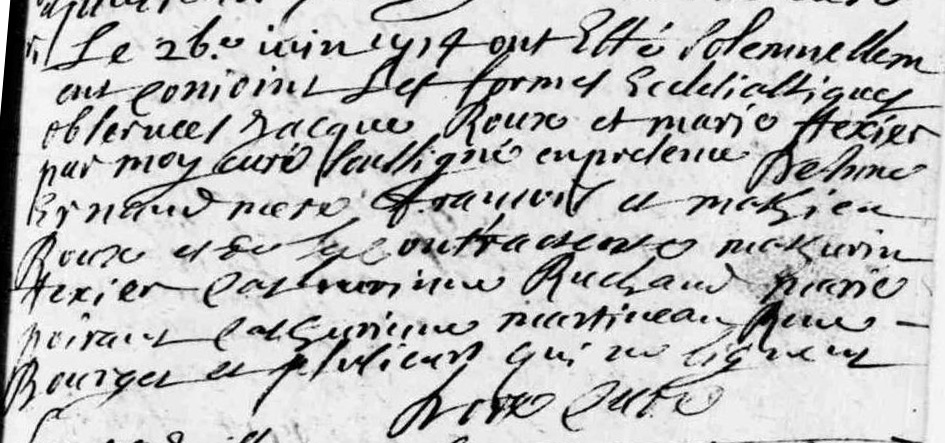 Le 26e iuin 1714 ont Esté solemnellem
ent conioint Les formes Ecclesiastiques
obseruees Jacque Roux et marie texier
par moy curé soussigné en presence
Ernaud mere francois et mathieu
Roux et de maturin
texier Catherinne Ruchaud marie
poiraut Catherinne martineau Rene
Bourget et plusieurs qui ne signent
curé